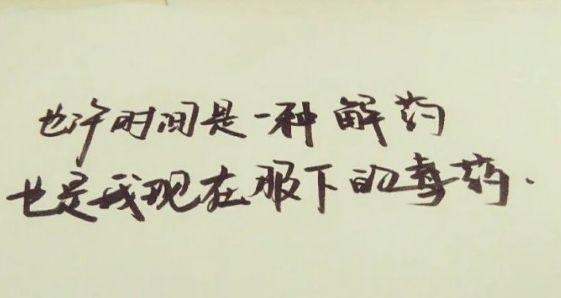 也许时间是一种解药
也是我现在服下的毒药.